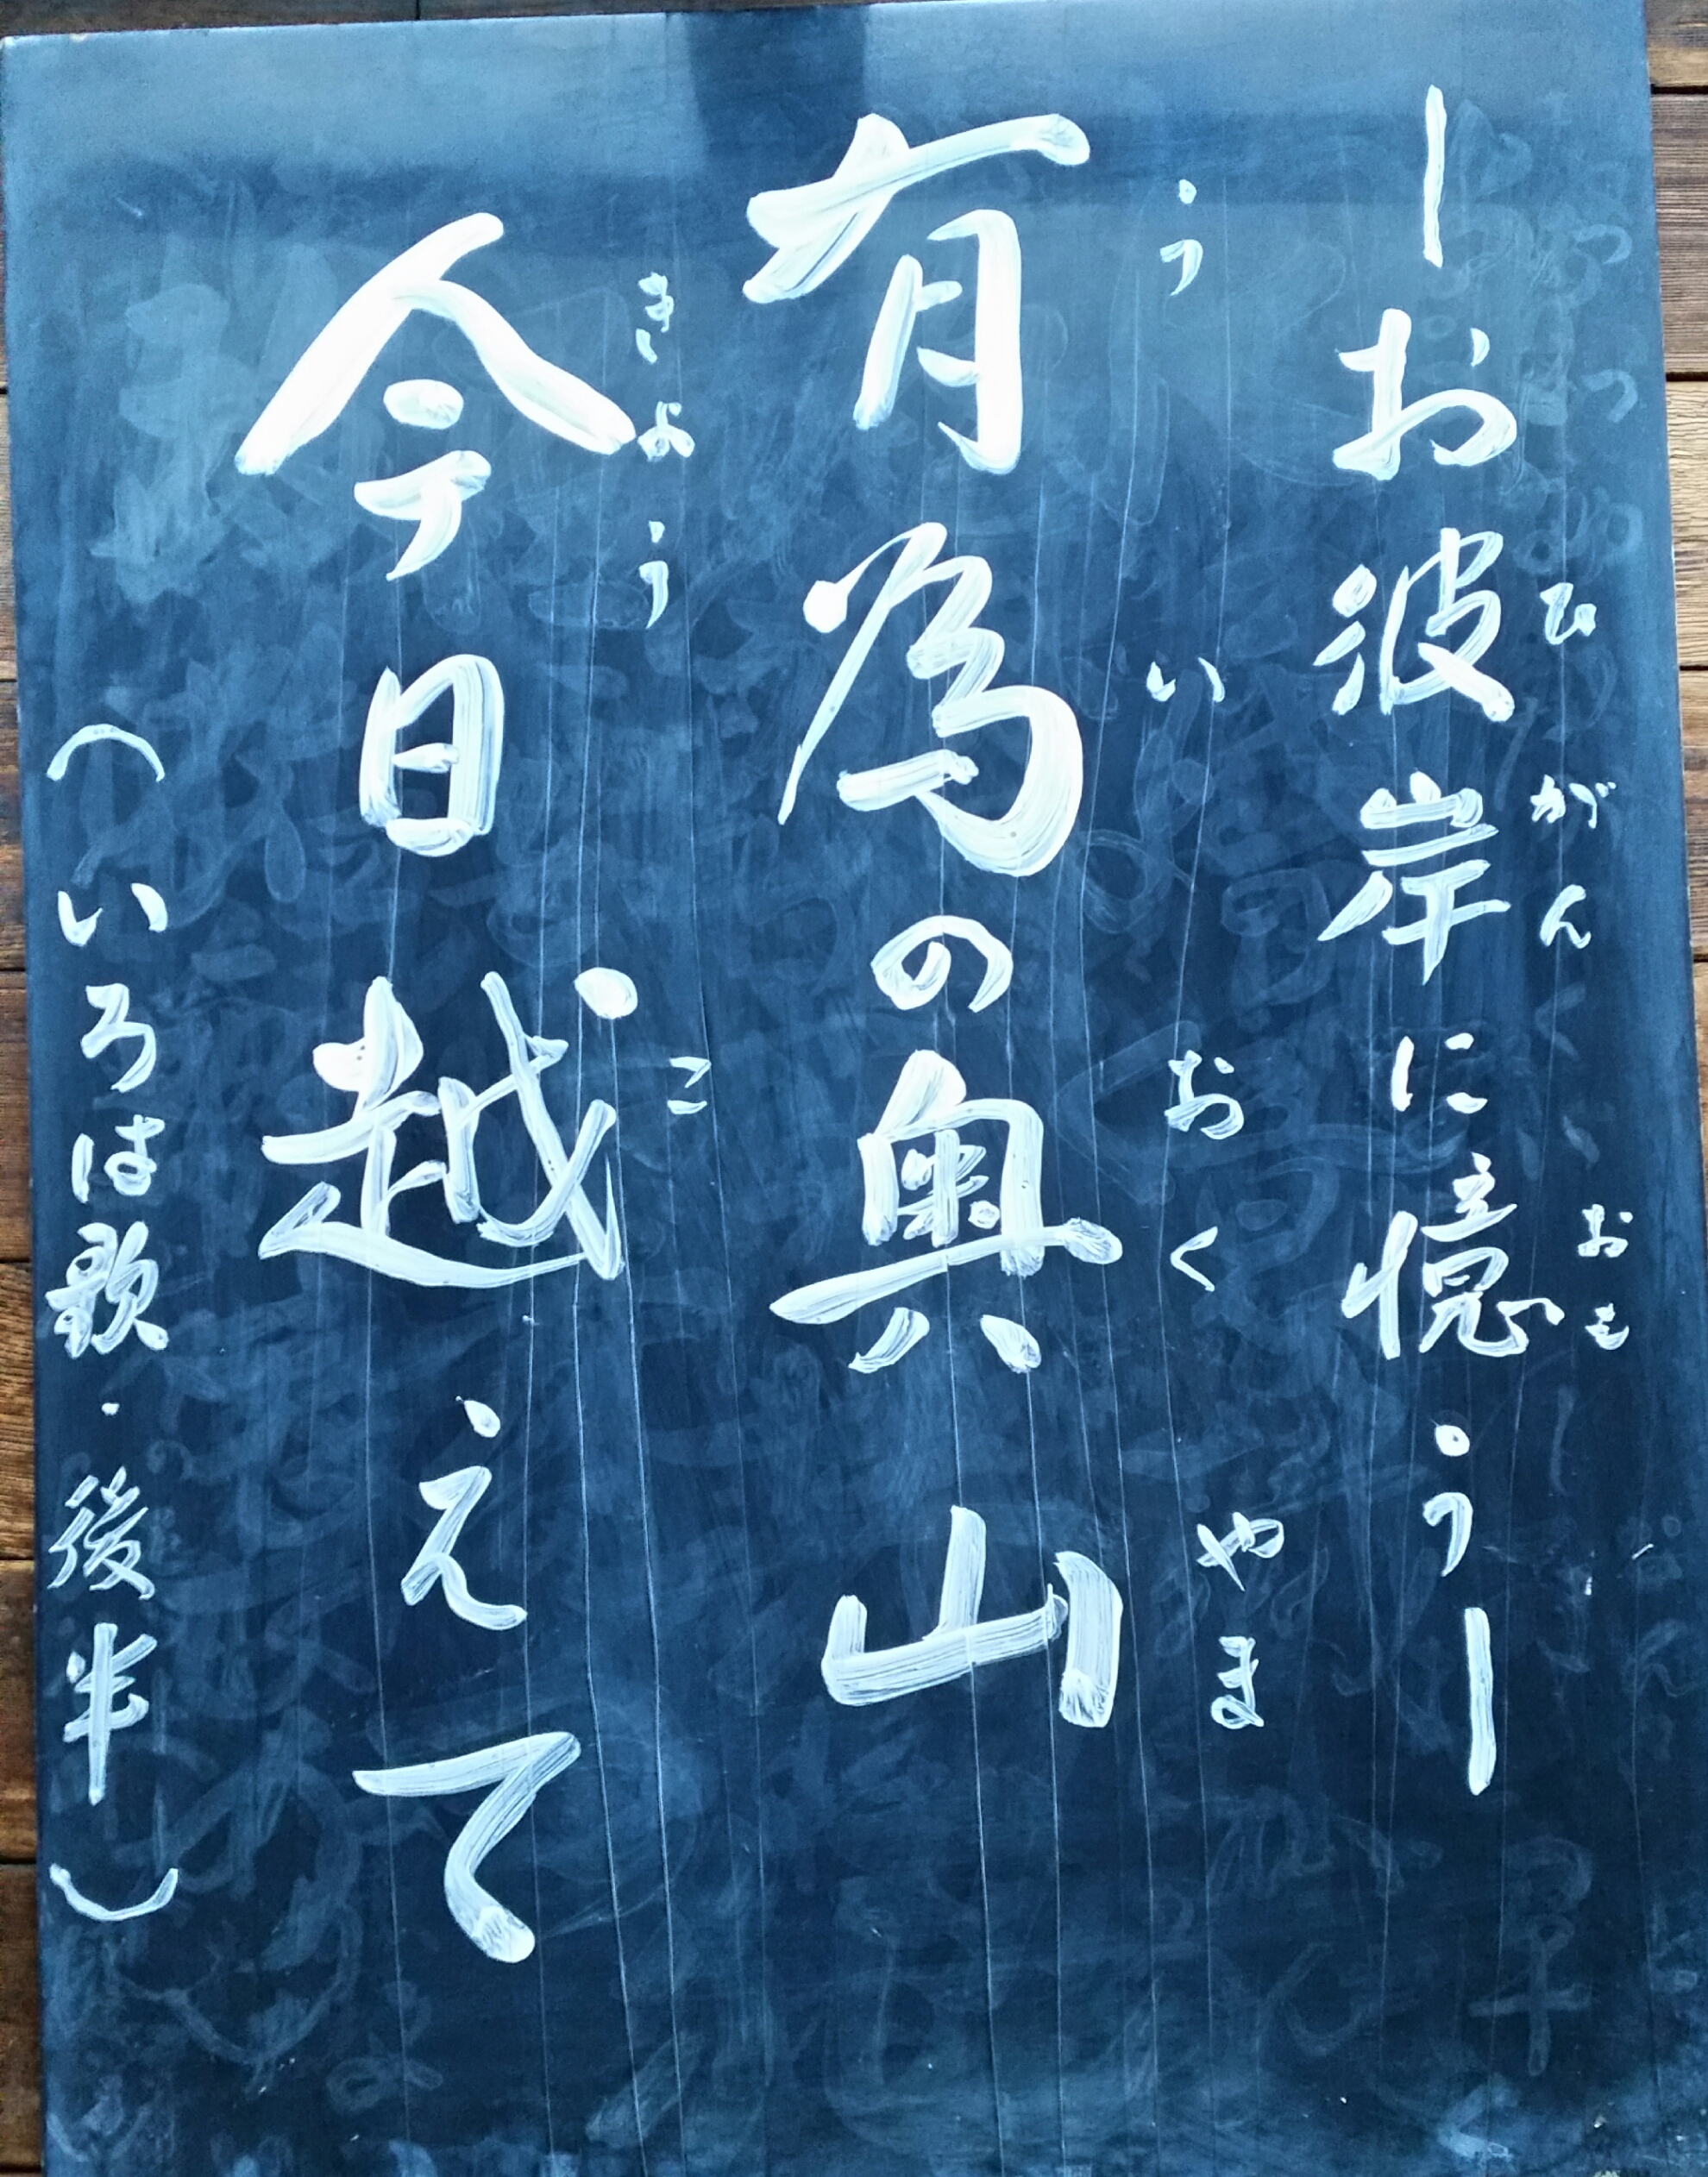 ―お彼岸に憶う―
ひがん
おも
有為の奥山
うい
おくやま
今日越えて
きょう
こ
(いろは歌・後半)